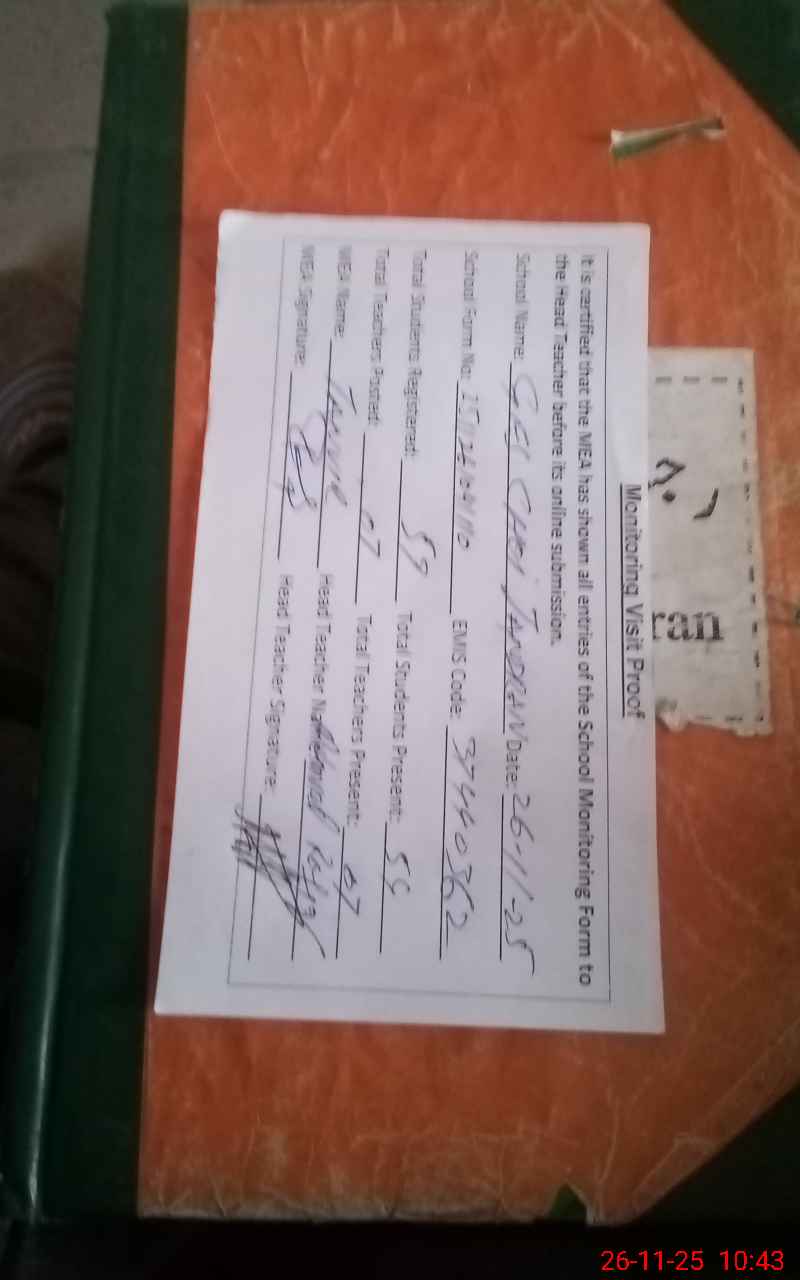 Monitoring Visit Proof
It is certified that the MEA has shown all entries of the School Monitoring Form to
the Head Teacher before its online submission.
School Name: Date: 26-11-25
School Form No: EMIS Code: 37440362
Total Students Registered: 59 Total Students Present:
Total Teachers Posted: 07 Total Teachers Present: 07
MEA Name: Head Teacher Name:
MEA Signature: Head Teacher Signature:
ran
26-11-25 10:43